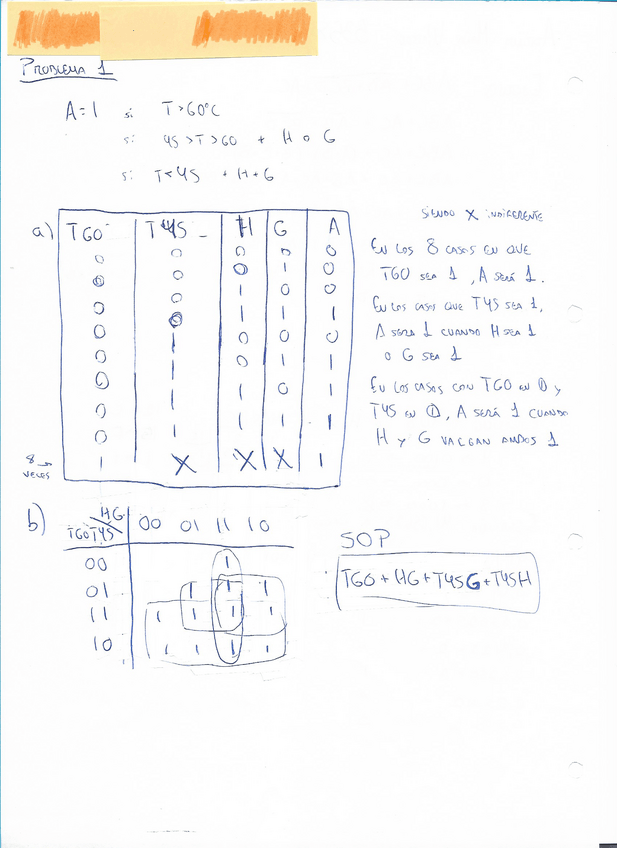 PROBLEMA 1
A=1 si T>60°C
si 45 >T >60 + H o G
si T<45 + H+G
a) T60 T45 H G A
0 0 0 0 0
0 0 0 1 0
0 0 1 0 0
0 0 1 1 1
0 1 0 0 0
0 1 0 1 1
0 1 1 0 1
0 1 1 1 1
8 → VECES 1 X X X 1
SIENDO X INDIFERENTE
EN LOS 8 CASOS EN QUE
T60 SEA 1, A SERÁ 1.
EN LOS CASOS QUE T45 SEA 1,
A SERÁ 1 CUANDO H SEA 1
O G SEA 1
EN LOS CASOS CON T60 EN 0 Y
T45 EN 0, A SERÁ 1 CUANDO
H Y G VALGAN AMBOS 1
b) HG
T60T45 00 01 11 10
00 1
01 1 1 1
11 1 1 1 1
10 1 1 1 1
SOP
T60 + HG + T45G + T45H